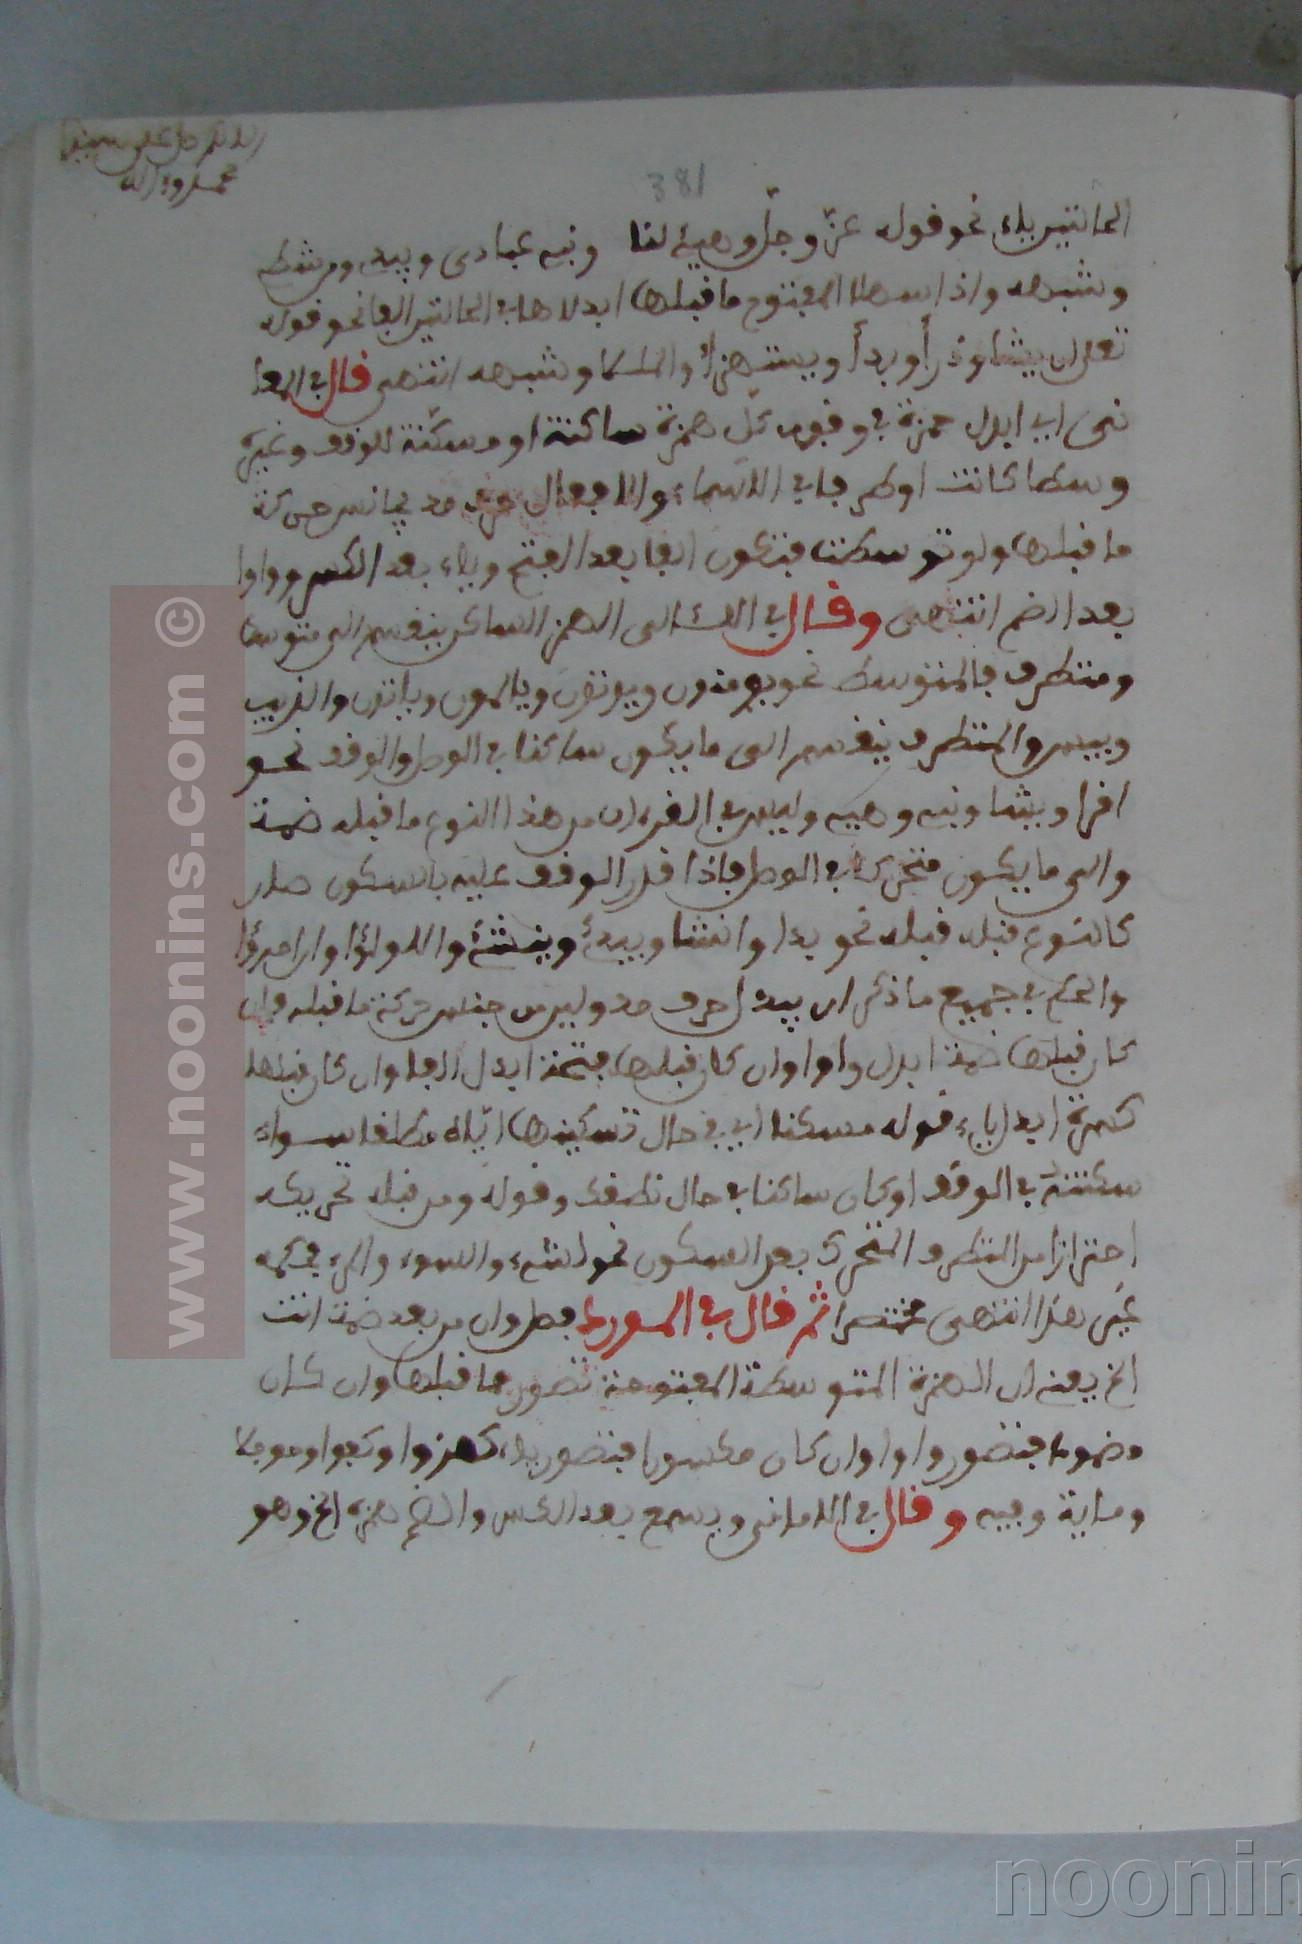 اللهم صل على سيدنا
محمد وءاله
381
الحالتين ياء نحو قوله عزّ وجلّ وهيئ لنا ونبئ عبادى ويبدء ومن شطء
وشبهه واذا سهلا المفتوح ما قبلها ابدلاها في الحالتين الفا نحو قوله
تعلى ان يشا وذرأ وبدأ ويستهزأ والملا وشبهه انتهى قال في المعا
نى اي ابدل حمزة في وقوفه كلّ همزة ساكنة او مسكّنة للوقف وغيره
وسطا كانت او طرفا في الاسماء والافعال حرف مد يجانس حركة
ما قبلها ولو توسكنت فتكون الفا بعد الفتح وياء بعد الكسر وواوا
بعد الضم انتهى وقال في اللئالى الهمز الساكن ينقسم الى متوسط
ومتطرف فالمتوسط نحو يومنون ويوتون ويالمون وياتون والذيب
وبيس والمتطرف ينقسم الى ما يكون ساكنا في الوصل والوقف نحو
اقرا ويشا ونبئ وهيئ وليس في القرءان من هذا النوع ما قبله ضمة
والى ما يكون متحركا في الوصل فاذا قدر الوقف عليه بالسكون صار
كالنوع قبله قبله نحو بدا وانشا ويبدئ وينشئ واللولؤا وان امرؤا
والحكم في جميع ما ذكر ان يبدل حرف مد ولين من جنس حركة ما قبله فان
كان قبلها ضمة ابدل واوا وان كان قبلها فتحة ابدل الفا وان كان قبلها
كسرة ابدل ياء قوله مسكنا اي في حال تسكينها ايّاه مطلقا سواء
سكنته في الوقف او كان ساكنا في حال نطقك وقوله ومن قبله تحريكه
احترازا من المتطرف المتحرك بعد السكون نحو شىء والسوء والمرء فحكمه
غير هذا انتهى مختصرا ثم قال في المورد فصل وان من بعد ضمة اتت
الخ يعنى ان الهمزة المتوسطة المفتوحة تصور ما قبلها وان كان
مضموما فتصور واوا وان كان مكسورا فتصور ياء كهزوا وكفوا وموجلا
وماية وفيه وقال في الامانى ويسمع بعد الكسر والضم همزه الخ وهو
www.noonins.com ©
noonin